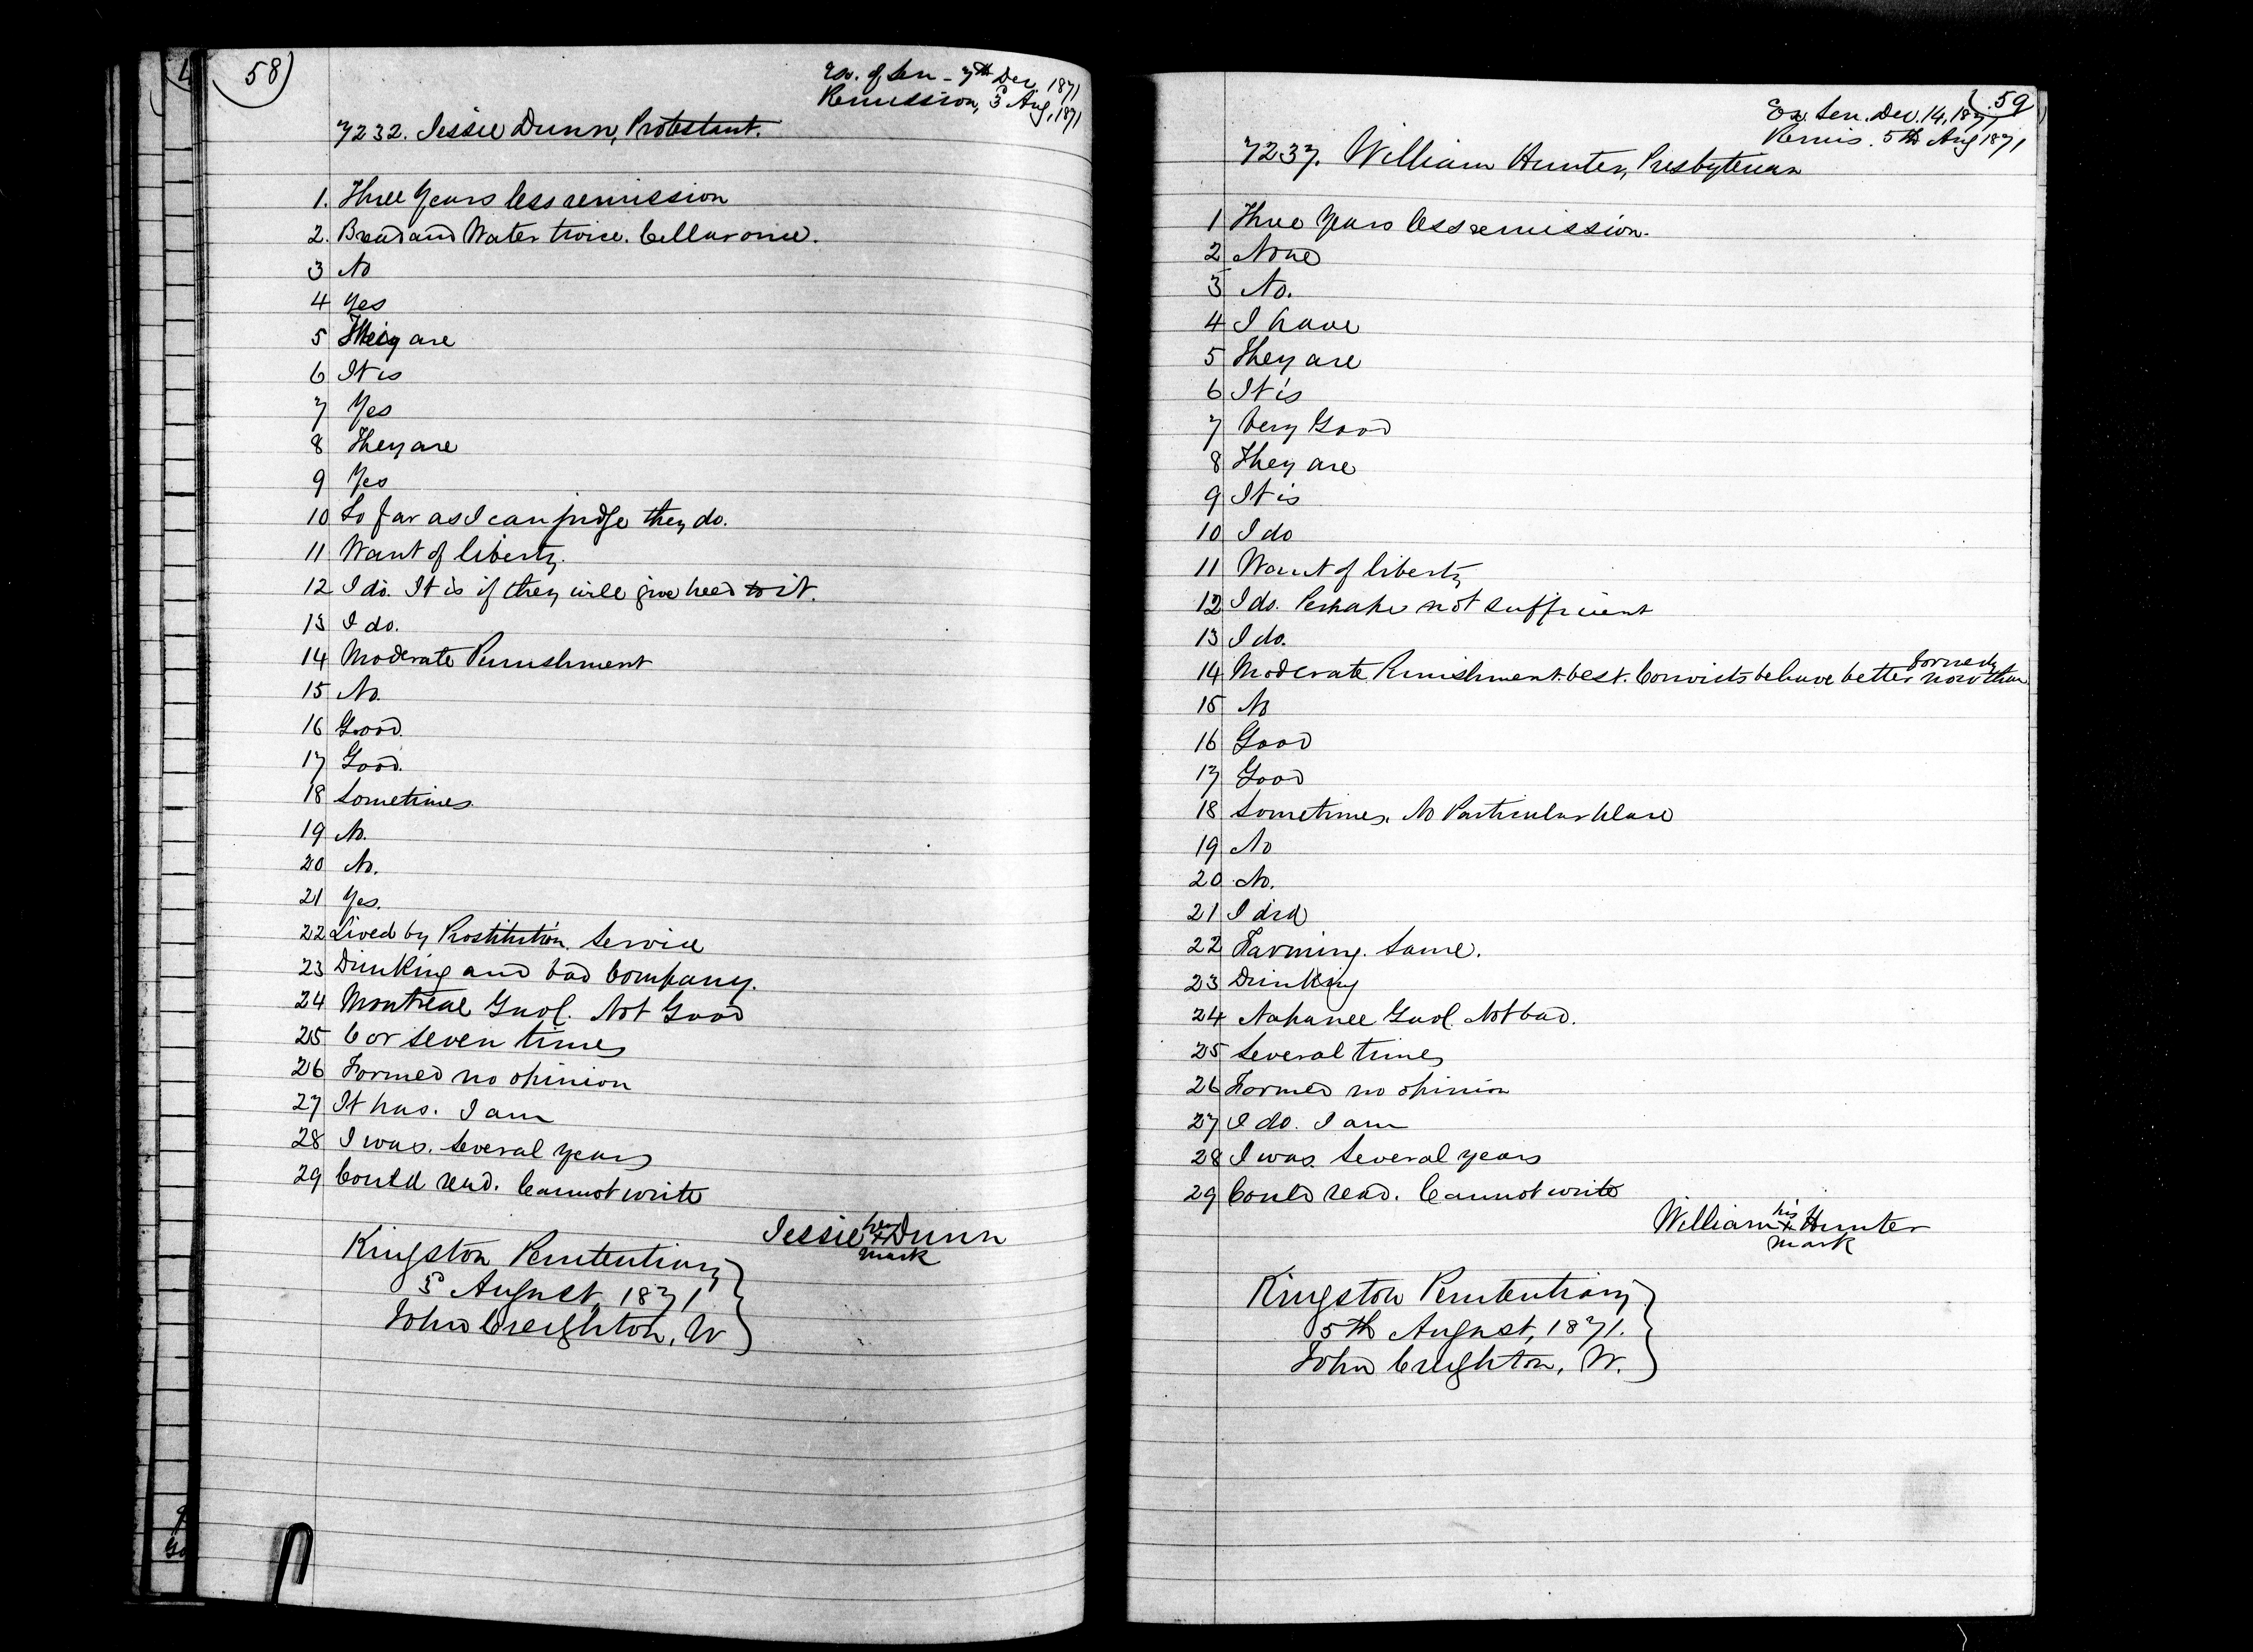 58)
Ex. of Sen - 7th Dec. 1871
Remission, 3d Aug, 1871
7232. Jessie Dunn, Protestant.
1. Three Years less remission
2. Bread and Water twice. Cellar once.
3 No
4 Yes
5 They are
6 It is
7 Yes
8 They are
9 Yes
10 So far as I can judge they do.
11 Want of liberty.
12 I do. It is if they will give heed to it.
13 I do.
14 Moderate Punishment
15 No.
16 Good.
17 Good.
18 Sometimes.
19 No.
20 No.
21 Yes.
22 Lived by Prostitution. Service
23 Drinking and bad Company.
24 Montreal Gaol. Not Good
25 6 or seven times
26 Formed no opinion
27 It has. I am
28 I was. Several years
29 Could read. Cannot write
Jessie her x Dunn
mark
Kingston Penitentiary
3d August, 1871
John Creighton, W
59
Ex. Sen. Dec. 14, 1871
Remis. 5th Aug 1871
7237. William Hunter, Presbyterian
1 Three Years less remission.
2 None
3 No.
4 I have
5 They are
6 It is
7 Very Good
8 They are
9 It is
10 I do
11 Want of liberty
12 I do. Perhaps not sufficient
13 I do.
14 Moderate Punishment best. Convicts behave better now than formerly
15 No
16 Good
17 Good
18 Sometimes. No Particular Place
19 No
20 No.
21 I did
22 Farming. Same.
23 Drinking
24 Napanee Gaol. Not bad.
25 Several times
26 Formed no opinion
27 I do. I am
28 I was. Several years
29 Could read. Cannot write
William his x Hunter
mark
Kingston Penitentiary
5th August, 1871.
John Creighton, W.